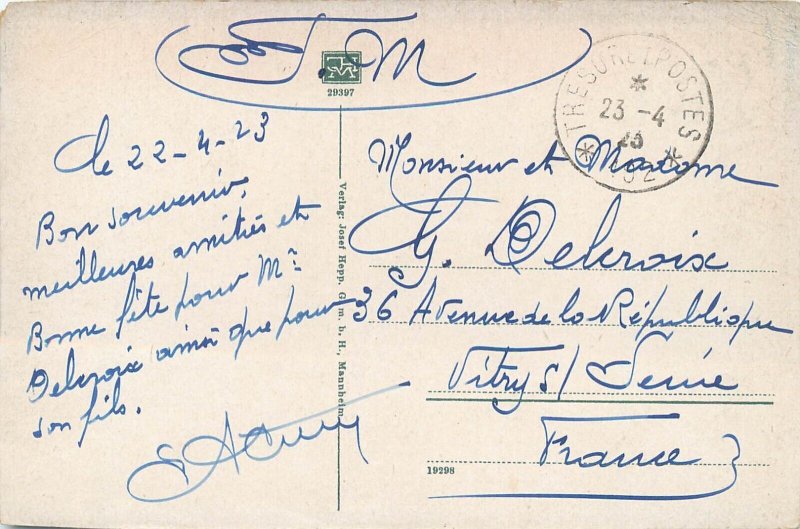 F. M
29397
TRESOR ET POSTES
23 - 4
23
le 22-4-23
Bon souvenir,
meilleures amitiés et
Bonne fête pour Mr
Delcroix ainsi que pour
son fils.
Verlag: Josef Hepp, G. m. b. H., Mannheim
Monsieur et Madame
G. Delcroix
36 Avenue de la République
Vitry s/ Seine
France
19298